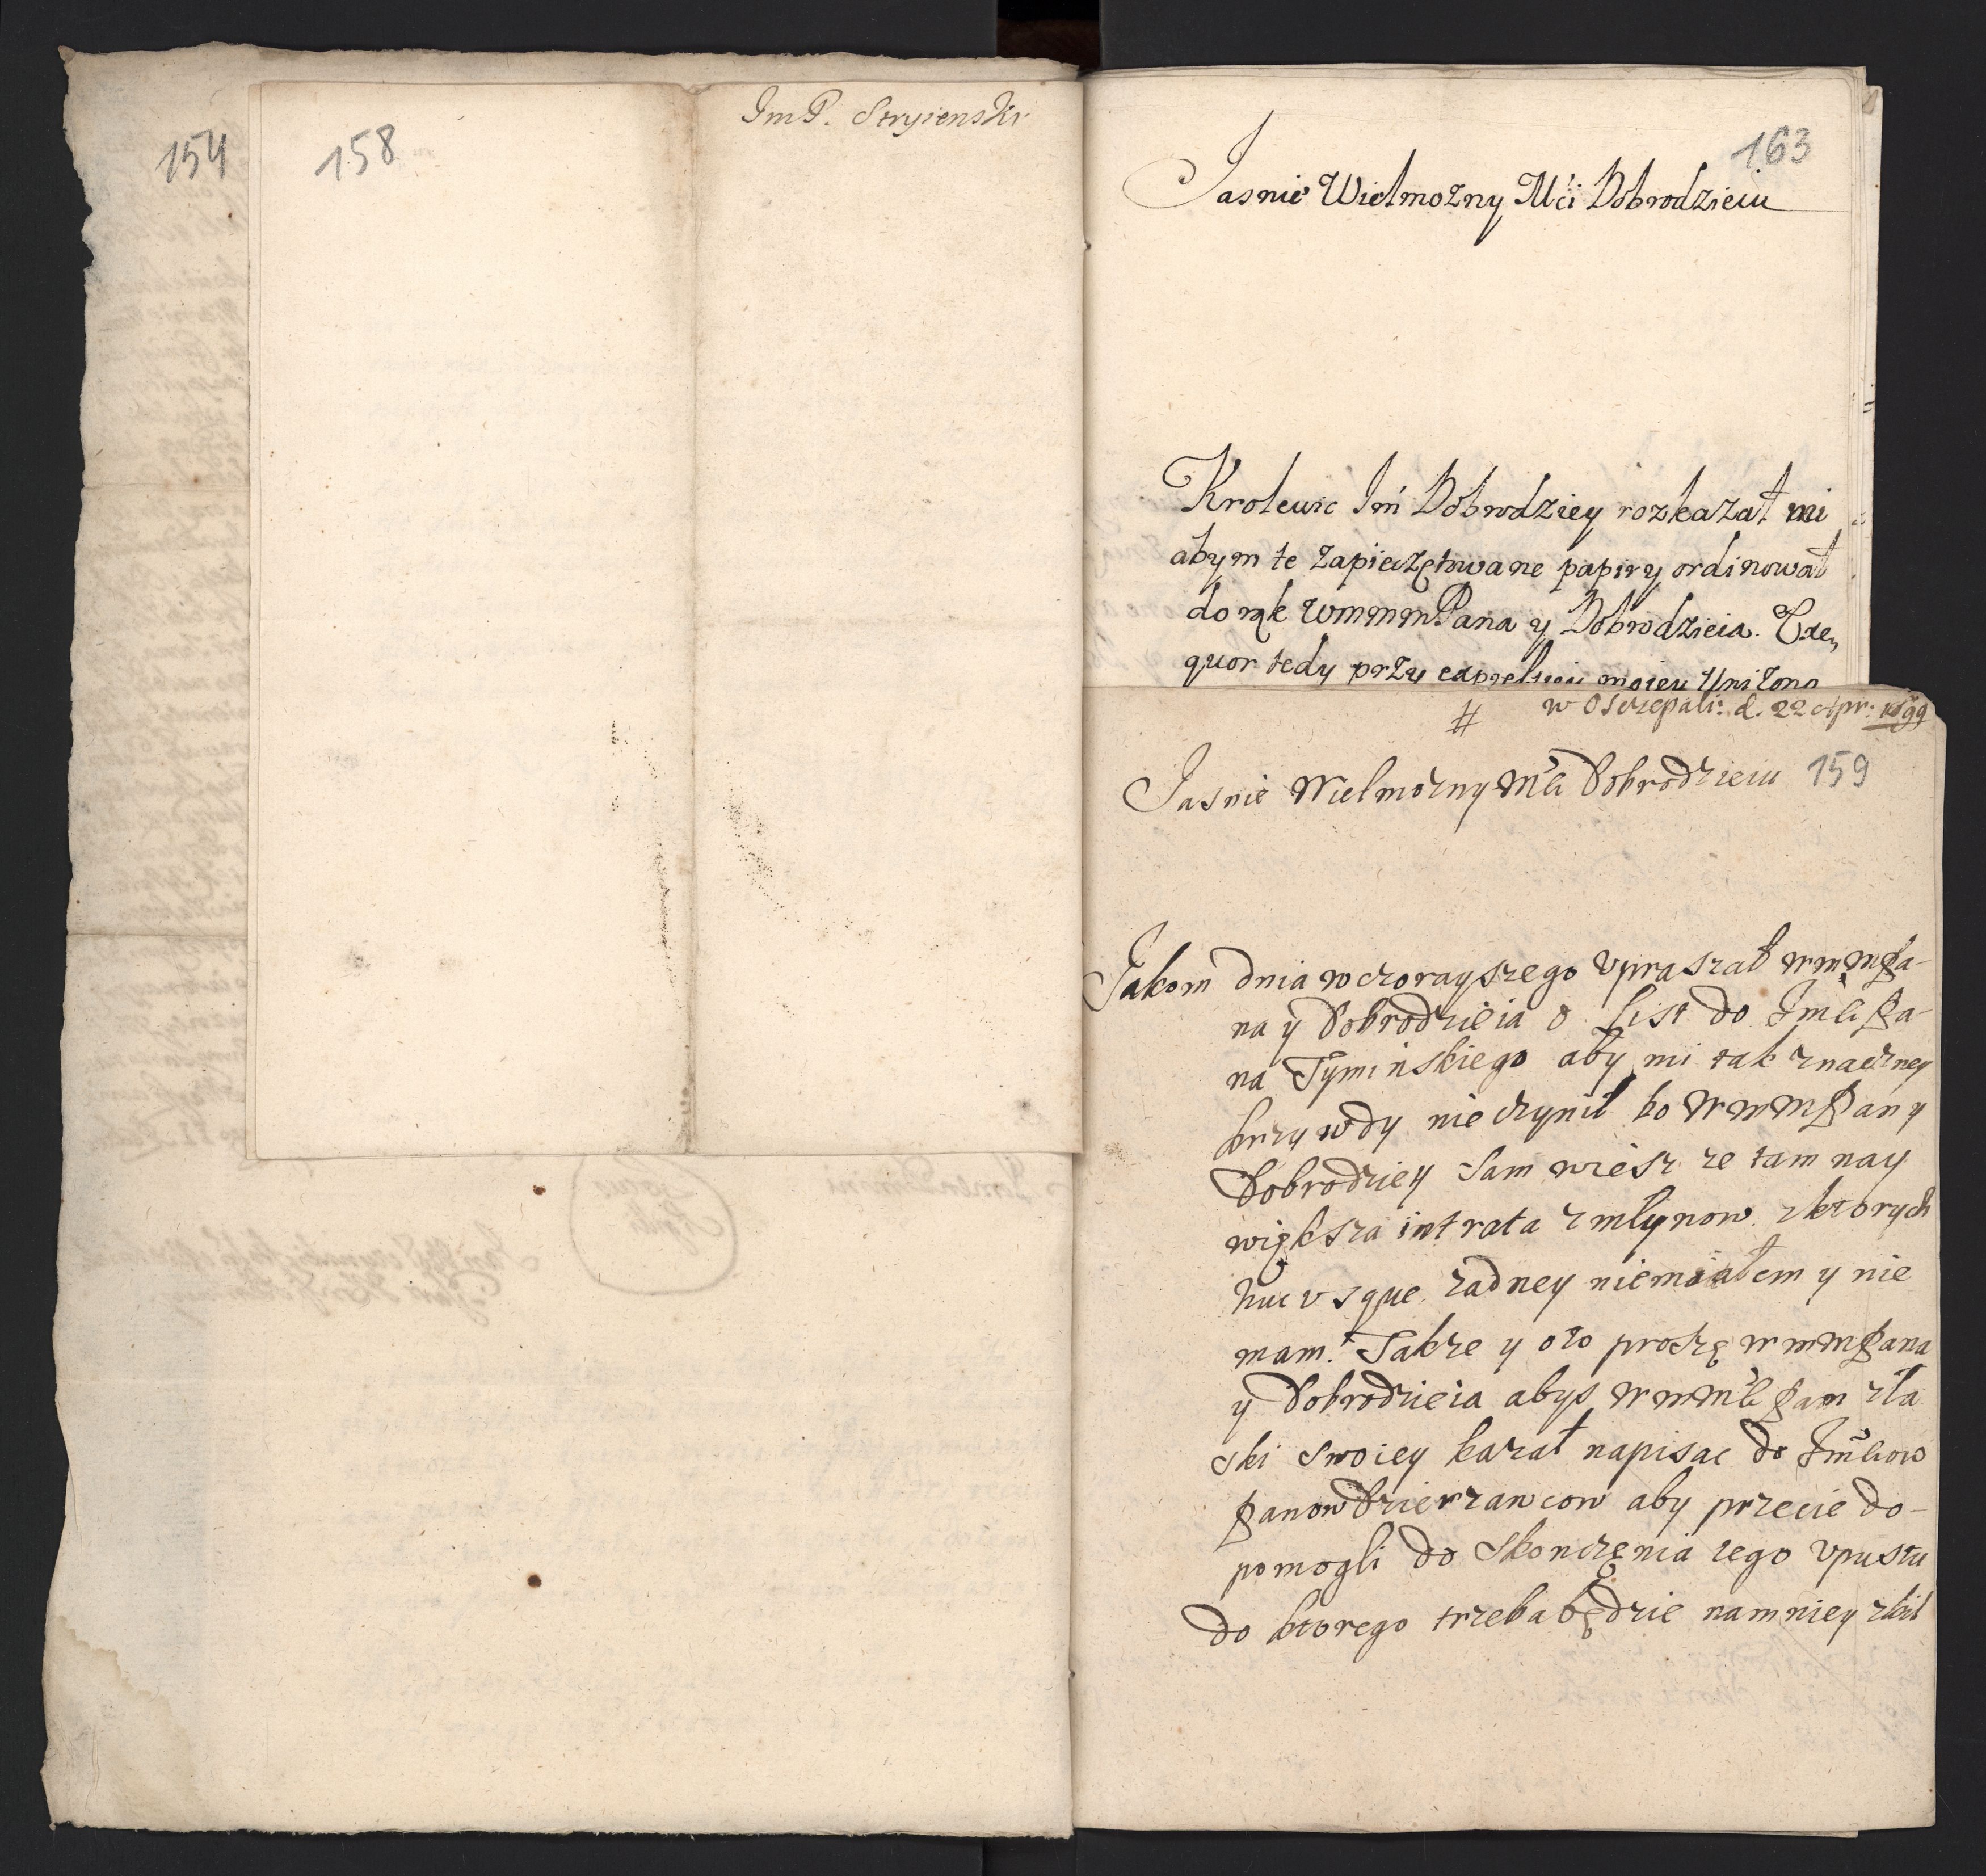 154
158
ImP. Stryienski
163
Jasnie Wielmozny Mći Dobrodzieiu
Krolewic Jmć Dobrodziey rozkazał mi
abym te zapieczętowane papiry ordinował
do rąk WmmmPana y Dobrodzieia. Exe„
quor tedy przy expressyi moiey Unizono
# w d. 22 Apr: 1699
Jasnie Wielmozny Mći Dobrodzieiu 159
Jakom dnia wczorayszego upraszał WmmPa-
na y Dobrodzieia o List do Jmći Pa-
na Tyminskiego aby mi tak znaczney
krzywdy nie czynił bo WmmmPan y
Dobrodziey Sam wiesz ze tam nay
większa intrata z młynow. z ktorych
huc usque zadney niemiałem y nie
mam. Takze y oto proszę WmmPana
y Dobrodzieia abys WmMći Pan zła
ski swoiey kazał napisac do Jmciow
Panow Dzierzawcow aby przecie do-
pomogli do skonczęnia tego upustu
do ktorego trzeba będzie namniey